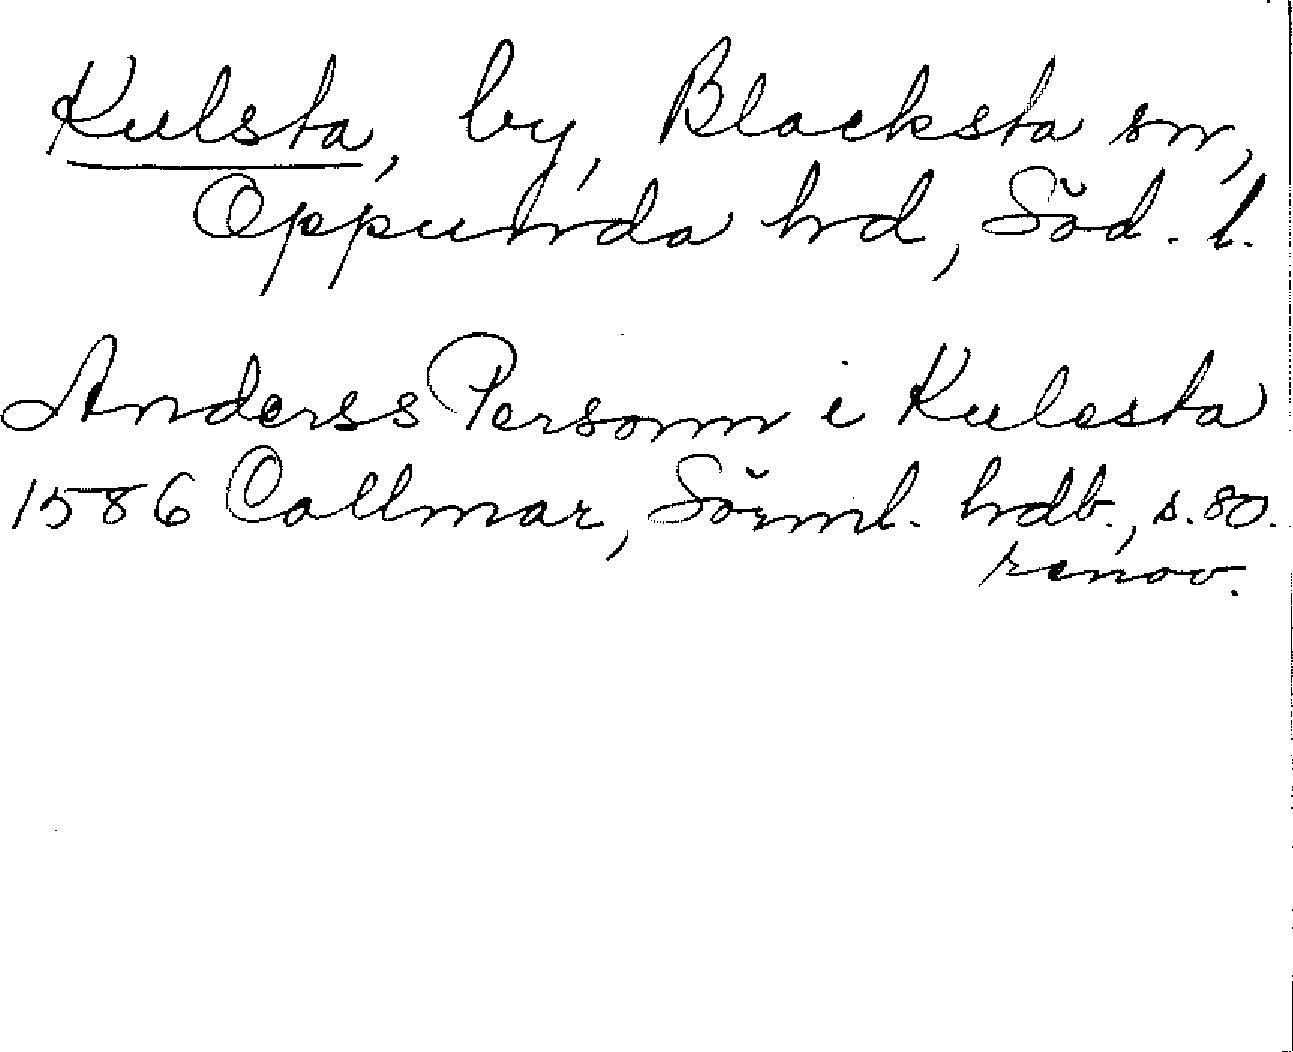 Kulsta, by, Blacksta sn,
Oppunda hd, Söd. l.
Anderss Personn i Kulesta
1586 Collmar, Sörml. hdb., s. 80.
renov.